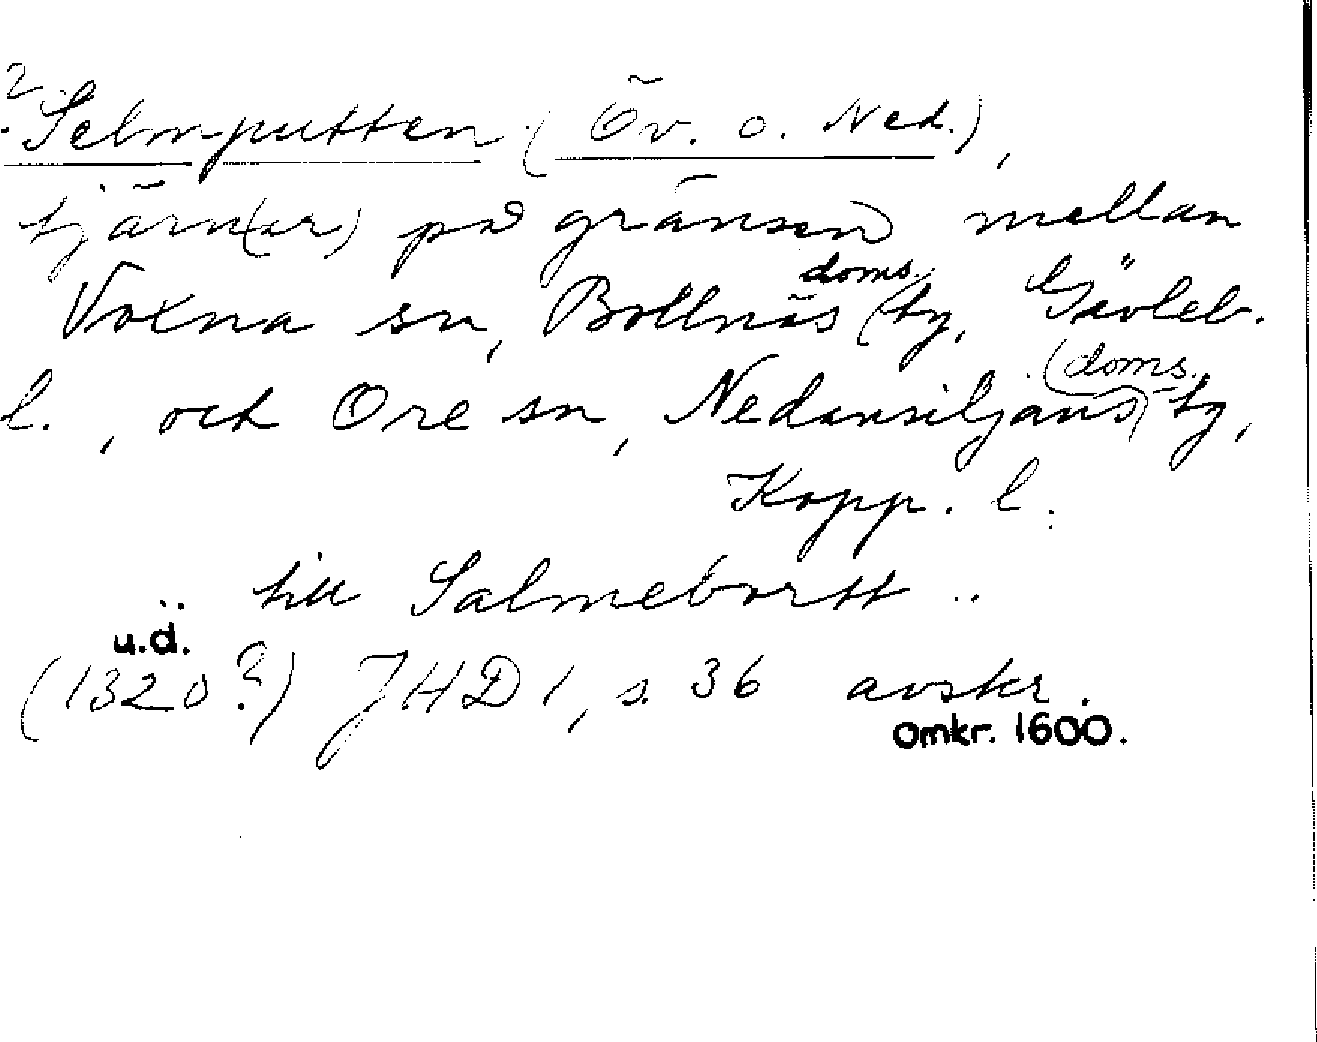 ?
Selm-putten (Öv. o. Ned.),
tjärn(ar) på gränsen mellan
Voxna sn, Bollnäs domstg, Gävleb.
l., och Ore sn, Nedansiljans (doms.) tg,
Kopp. l.
.. till Salmebortt ..
u.d.
(1320?) JHD 1, s. 36 avskr.
omkr. 1600.